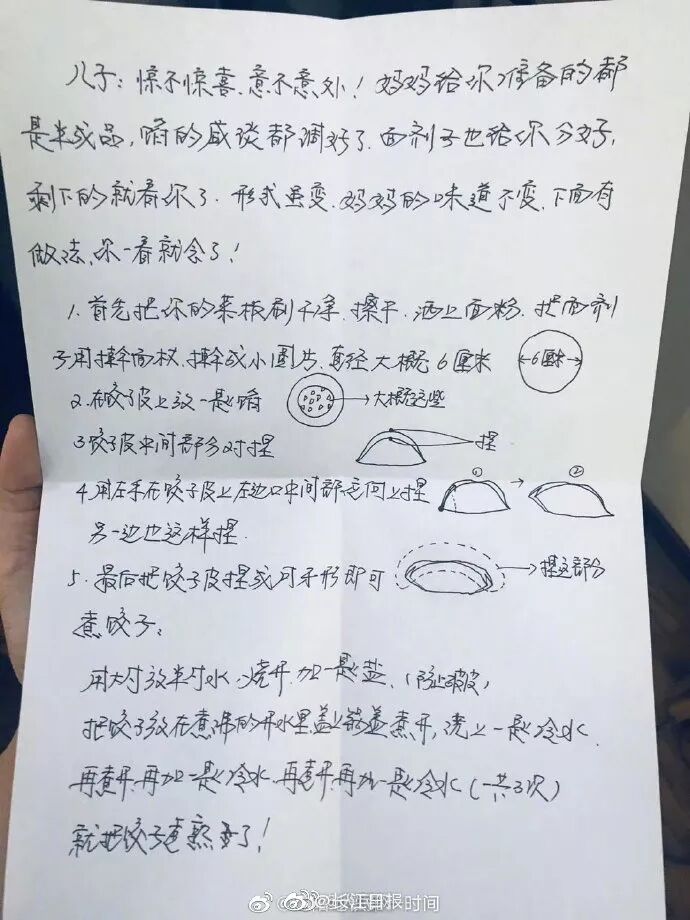 儿子:惊不惊喜、意不意外!妈妈给你准备的都
是半成品,馅的咸淡都调好了.面剂子也给你分好,
剩下的就看你了.形式虽变、妈妈的味道不变、下面有
做法、你一看就会了!
1.首先把你的菜板刷干净、擦干、洒上面粉、把面剂
子用擀面杖、擀成小圆片、直径大概6厘米
←6厘米→
2.在饺子皮上放一些馅
大概这些
3.饺子皮中间部分对捏
捏
4.用左手在饺子皮上左边口中间部位向上捏
① → ②
另一边也这样捏.
5.最后把饺子皮捏成月牙形即可
捏这部分
煮饺子:
用大锅放半锅水、烧开、加一些盐、(防止破皮)
把饺子放在煮沸的开水里盖上锅盖煮开,浇上一些冷水.
再煮开、再加一些冷水、再煮开再加一些冷水(一共3次)
就把饺子煮熟了!
长江日报 时间